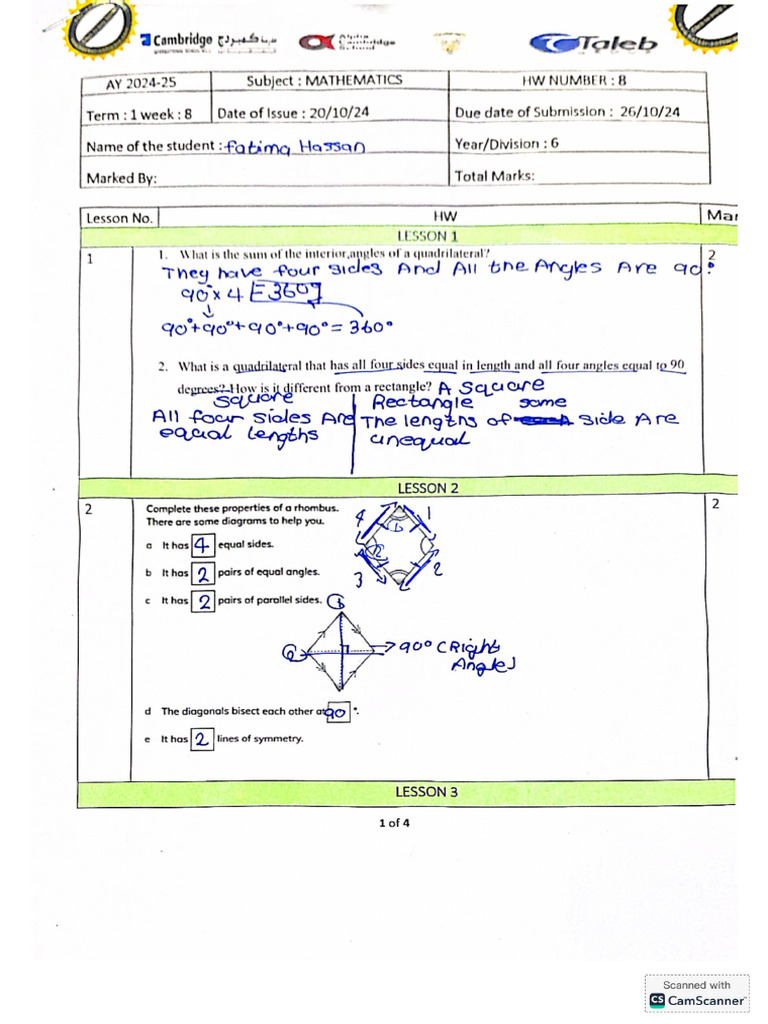 Cambridge كامبريدج
Alpha Cambridge School
Taleb
AY 2024-25 Subject : MATHEMATICS HW NUMBER : 8
Term : 1 week : 8 Date of Issue : 20/10/24 Due date of Submission : 26/10/24
Name of the student : Fatima Hassan Year/Division : 6
Marked By: Total Marks:
Lesson No. HW Mar
LESSON 1
1 1. What is the sum of the interior,angles of a quadrilateral? 2
They have four sides And All the Angles Are 90°.
90° x 4 [= 360°]
90°+90°+90°+90° = 360°
2. What is a quadrilateral that has all four sides equal in length and all four angles equal to 90
degrees? How is it different from a rectangle? A square
square Rectangle same
All four sides Are The lengths of side Are
equal lengths unequal
LESSON 2
2 Complete these properties of a rhombus. 2
There are some diagrams to help you.
4 1
a It has 4 equal sides.
b It has 2 pairs of equal angles.
3 2
c It has 2 pairs of parallel sides.
90° (Right
Angle)
d The diagonals bisect each other at 90 °.
e It has 2 lines of symmetry.
LESSON 3
1 of 4
Scanned with
CS CamScanner